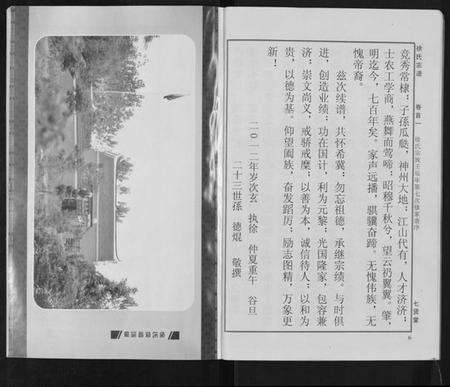 徐氏宗谱 卷首一 徐氏宗族壬辰年第七次修家谱序 七贤堂
竞秀常棣；子孫瓜瓞，神州大地；江山代有，人才济济；
士农工学商，燕舞而莺啼；昭穆千秋兮，望云礽翼翼。肇
明迄今，七百年矣。家声远播，骐骥奋蹄，无愧伟族，无
愧帝裔。
兹次续谱，共怀希冀；勿忘祖德，承继宗绩。与时俱
进，创造业绩；功在国计，利为元黎；光国隆家，包容兼
济；崇文尚义，戒骄戒糜；以善为本，诚信待人；以和为
贵，以德为基。仰望闽族，奋发蹈厉；励志图精，万象更
新！
二〇一二年岁次玄黓执徐 仲夏重午 谷旦
二十三世孫 德焜 敬撰